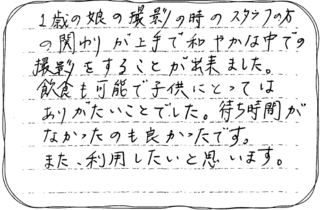 1歳の娘の撮影の時のスタッフの方
の関わりが上手で和やかな中での
撮影をすることが出来ました。
飲食も可能で子供にとっては
ありがたいことでした。待ち時間が
なかったのも良かったです。
また、利用したいと思います。